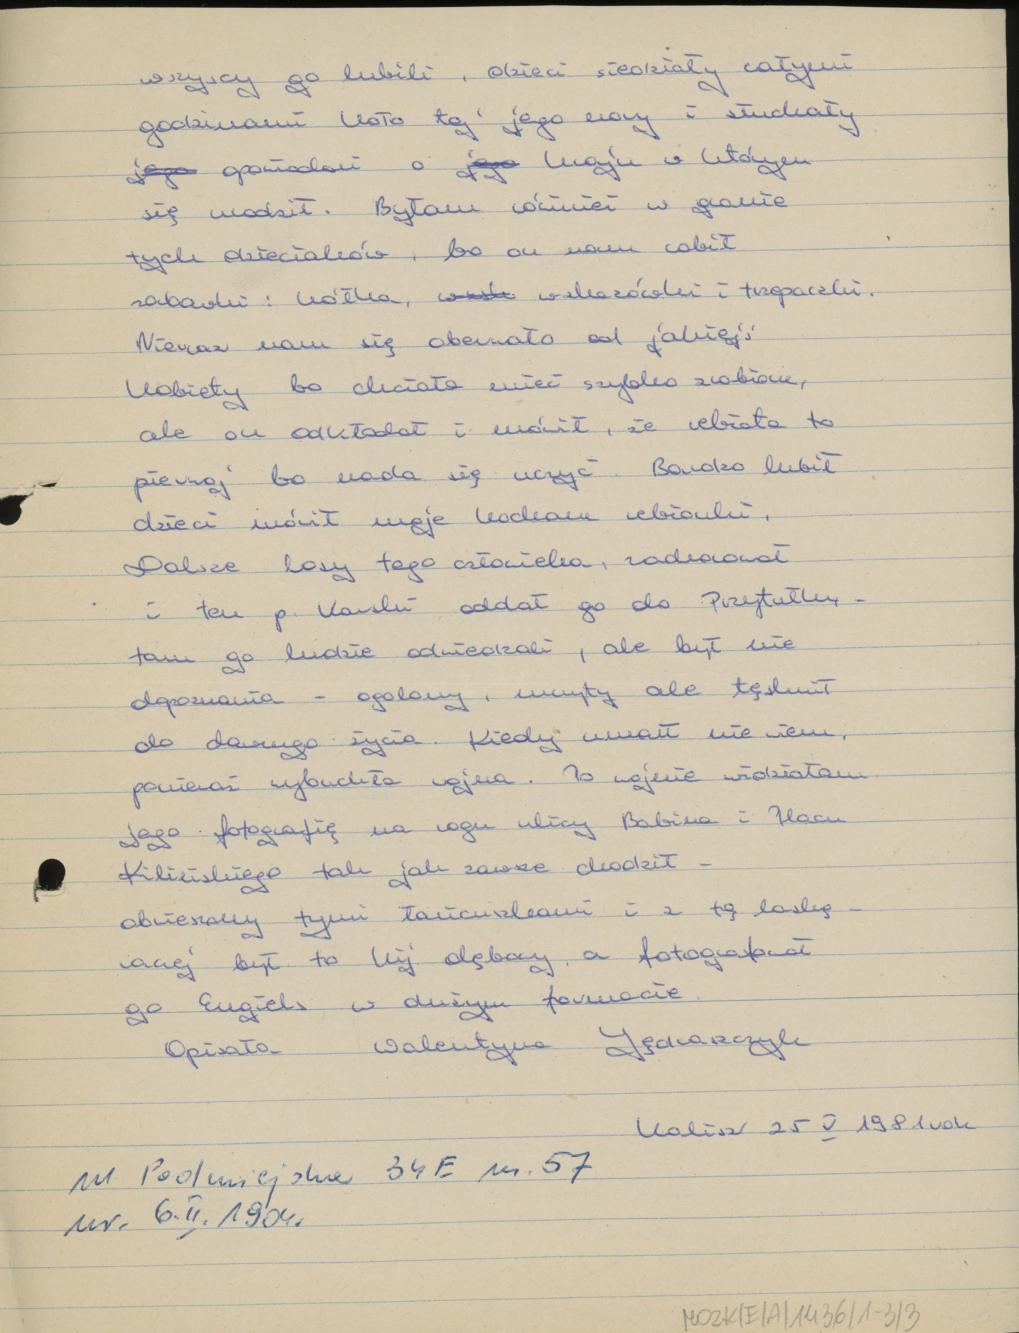 wszyscy go lubili, dzieci siedziały całymi
godzinami koło tej jego nory i słuchały
jego opowiadań o jego kraju w którym
się urodził. Byłam również w gronie
tych dzieciaków, bo on nam robił
zabawki: kółka, wskazówki i trzepaczki.
Nieraz nam się oberwało od jakiejś
kobiety bo chciała mieć szybko zrobione,
ale on odkładał i mówił, że rebiata to
pierwej bo nada się uczyć. Bardzo lubił
dzieci mówił moje kochane rebionki.
Dalsze losy tego człowieka, zachorował
i ten p. Karski oddał go do Przytułku -
tam go ludzie odwiedzali, ale był nie
dopoznania - ogolony, umyty ale tęsknił
do dawnego życia. Kiedy umarł nie wiem,
ponieważ wybuchła wojna. Po wojnie widziałam
jego fotografię na rogu ulicy Babina i Placu
Kilińskiego tak jak zawsze chodził -
obwieszony tymi łańcuszkami i z tą laską -
raczej był to kij dębowy, a fotografował
go Engiels w dużym formacie.
Opisała Walentyna Jędraszczyk
Kalisz 25 V 1981 rok
ul. Podmiejska 34E m. 57
ur. 6.II.1904.
MOZK/E/A/1436/1-3/3